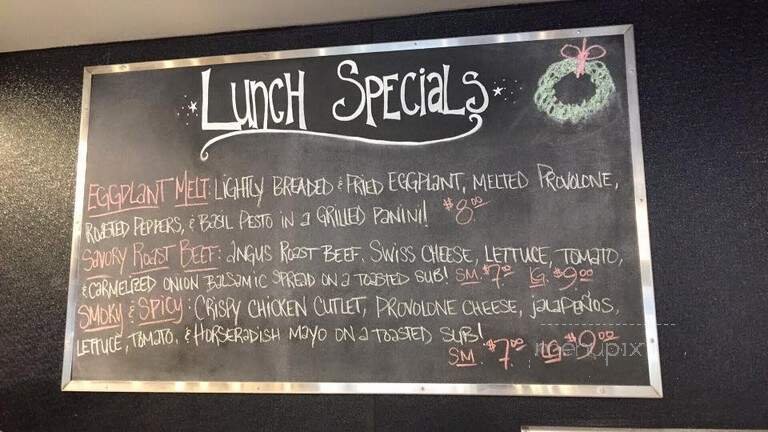 Lunch Specials
Eggplant Melt: Lightly Breaded & Fried Eggplant, Melted Provolone,
Roasted Peppers, & Basil Pesto in a Grilled Panini! $8.00
Savory Roast Beef: Angus Roast Beef, Swiss Cheese, Lettuce, Tomato,
& Carmelized Onion Balsamic Spread on a Toasted Sub! SM. $7.00 LG. $9.00
Smoky & Spicy: Crispy Chicken Cutlet, Provolone Cheese, Jalapeños,
Lettuce, Tomato, & Horseradish Mayo on a Toasted Sub!
SM. $7.00 LG. $9.00
menupix